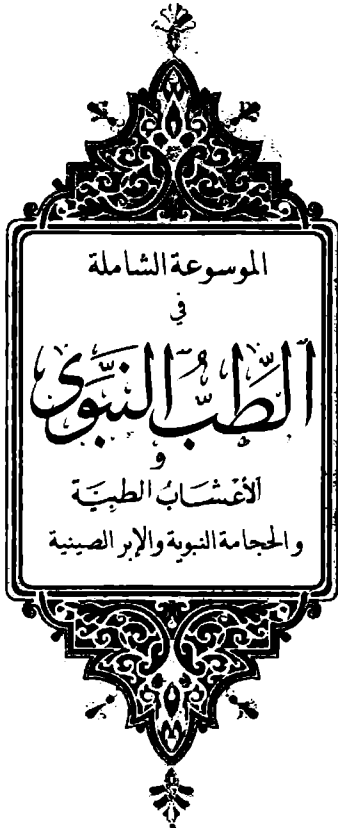 الموسوعة الشاملة
في
الطب النبوى
و
الأعشاب الطبية
والحجامة النبوية والإبر الصينية